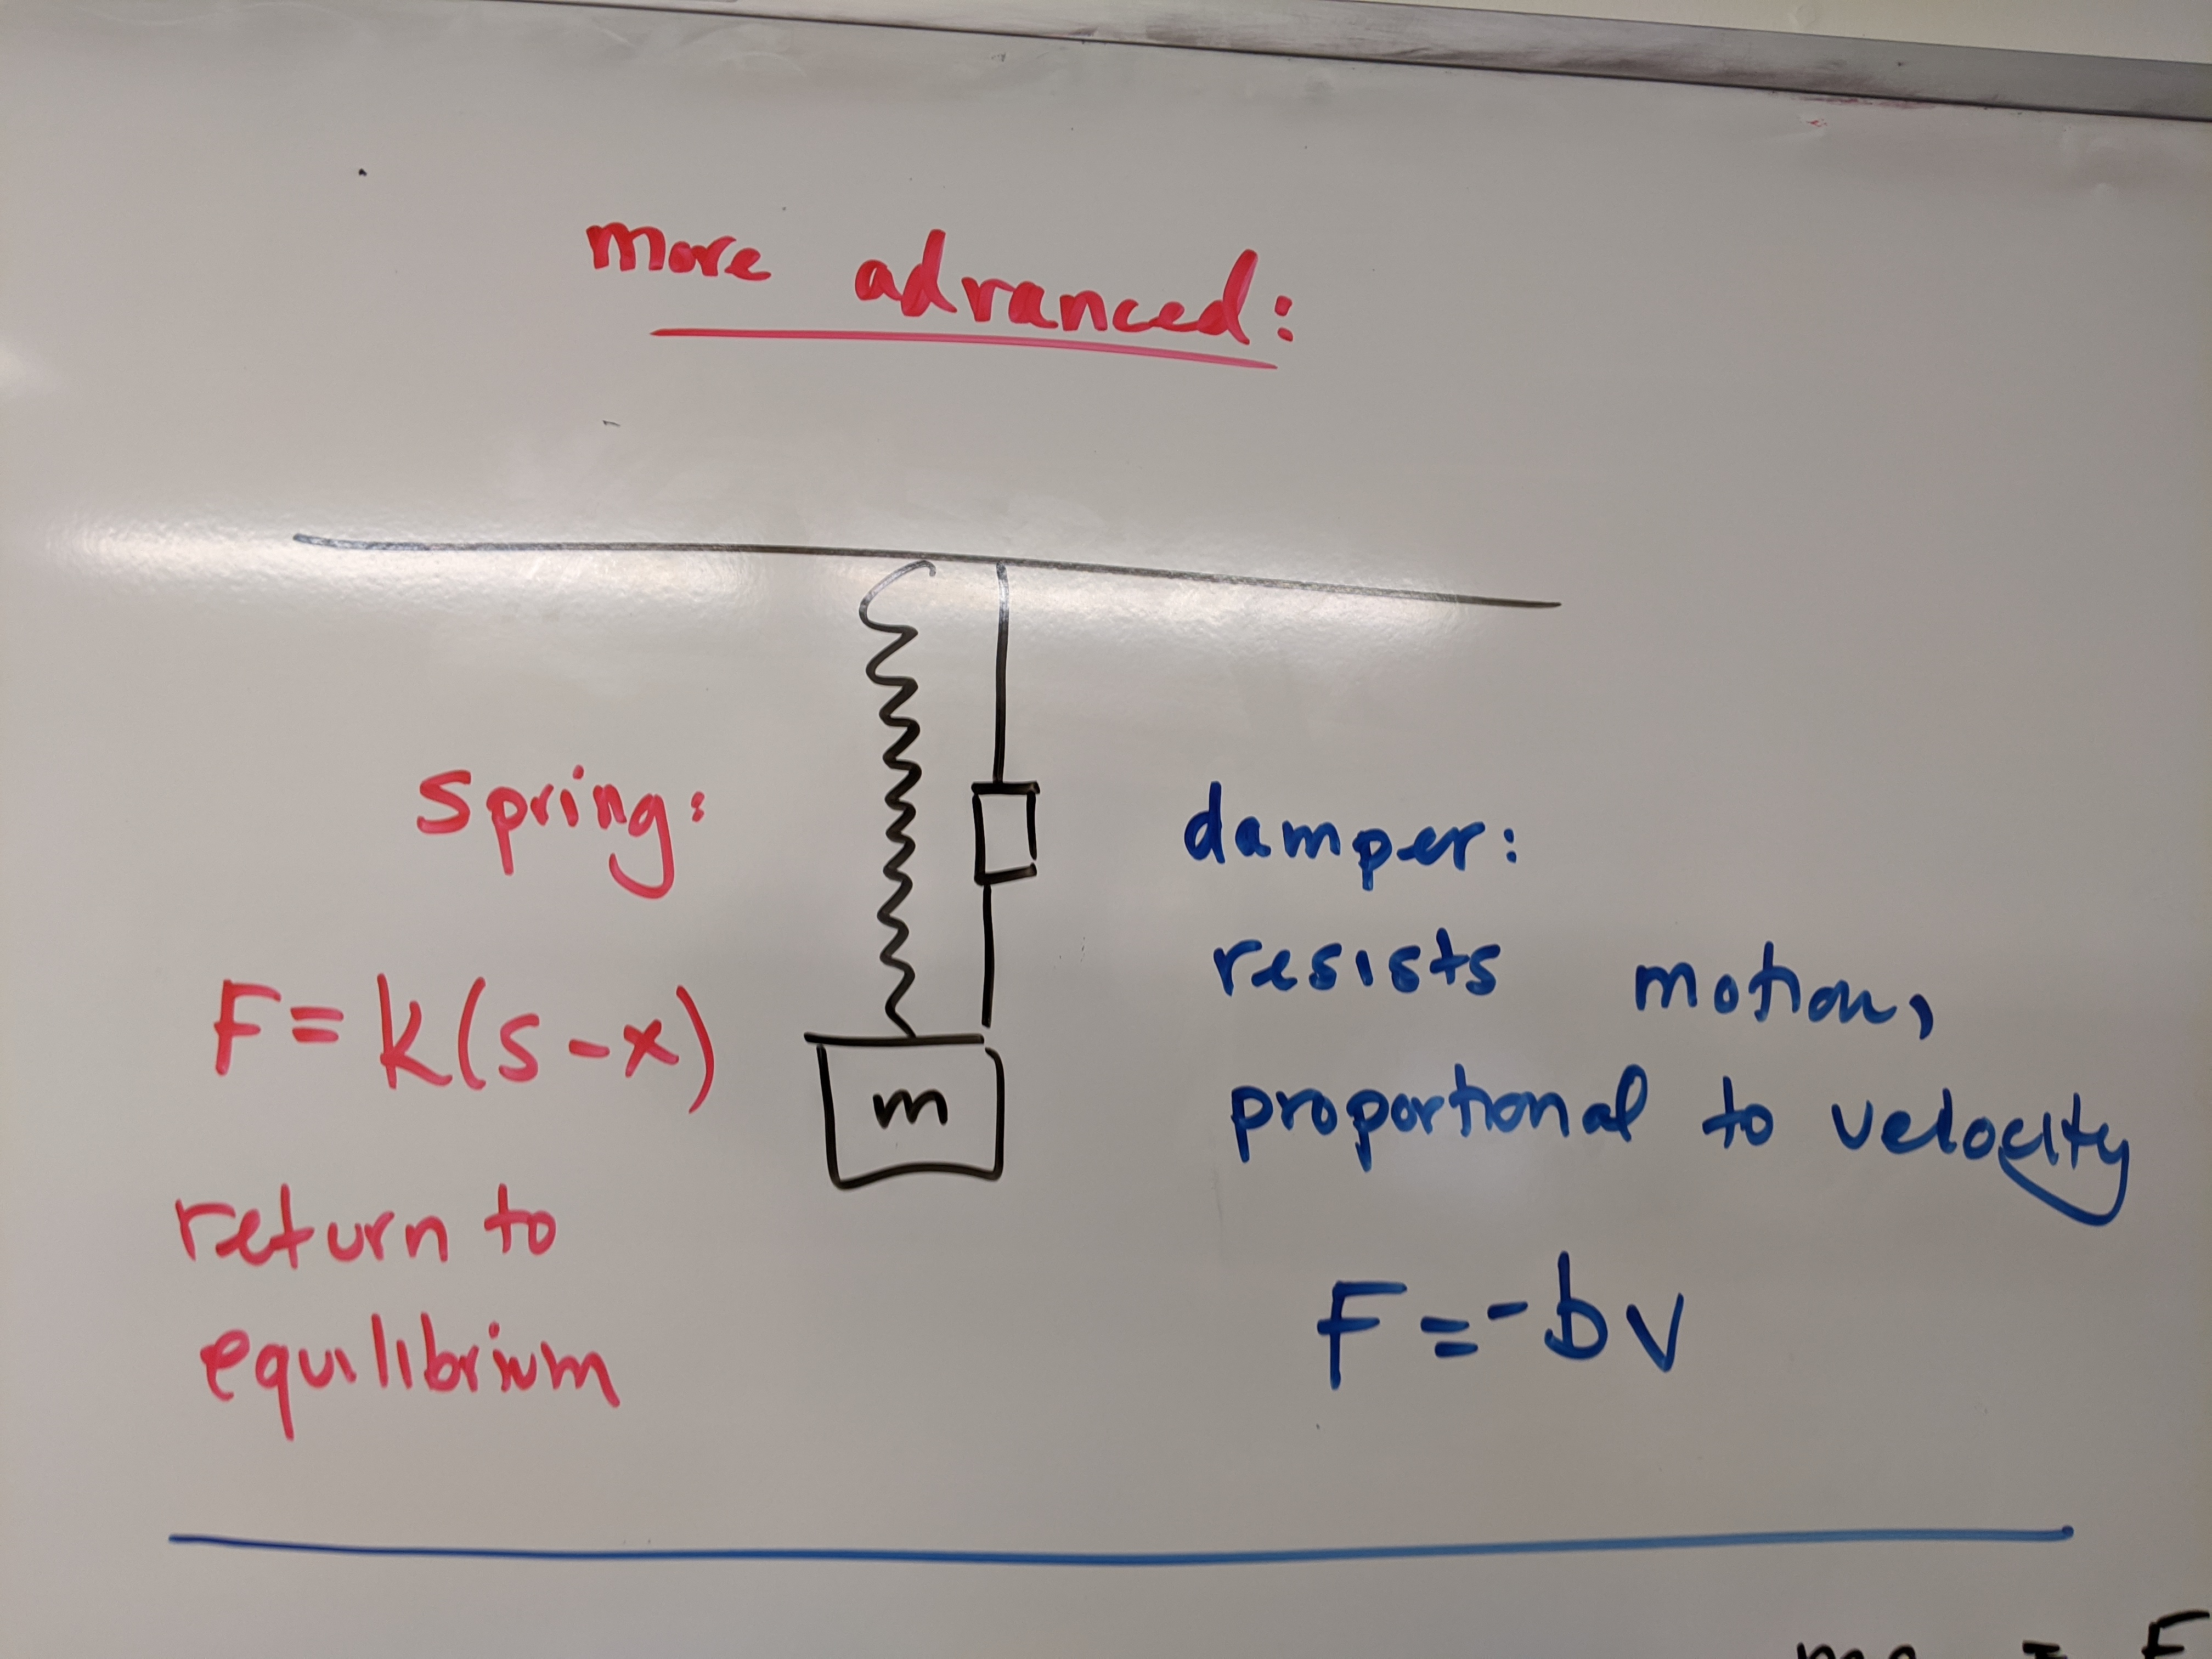 more advanced:
spring:
F=k(s-x)
return to
equilibrium
m
damper:
resists motion,
proportional to velocity
F=-bv
ma = F